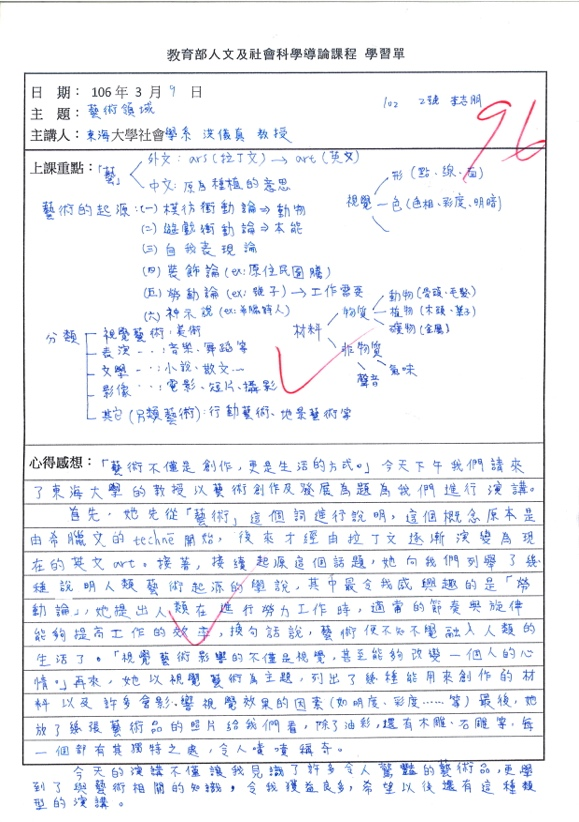 教育部人文及社會科學導論課程 學習單
日 期：106 年 3 月 9 日
102 2號
主 題：藝術領域
主講人：東海大學社會學系 洪儀真 教授
96
上課重點：「藝」
外文：ars(拉丁文)→art(英文)
中文：原為種植的意思
視覺
形(點、線、面)
色(色相、彩度、明暗)
藝術的起源：(一)模彷衝動論⇒動物
(二)遊戲衝動論⇒本能
(三)自我表現論
(四)裝飾論(ex:原住民圖騰)
(五)勞動論(ex:猴子)→工作需要
(六)神示說(ex:希臘詩人)
材料
物質
動物(骨頭、毛髮)
植物(木頭、葉子)
礦物(金屬)
非物質
氣味
聲音
分類
視覺藝術：美術
表演〃〃：音樂、舞蹈等
文學〃〃：小說、散文…
影像〃〃：電影、短片、攝影
其它(另類藝術)：行動藝術、地景藝術等
心得感想：「藝術不僅是創作，更是生活的方式。」今天下午我們請來
了東海大學的教授以藝術創作及發展為題為我們進行演講。
首先，她先從「藝術」這個詞進行說明，這個概念原本是
由希臘文的techne開始，後來才經由拉丁文逐漸演變為現
在的英文art。接著，接續起源這個話題，她向我們列舉了幾
種說明人類藝術起源的學說，其中最令我感興趣的是「勞
動論」，她提出人類在進行勞力工作時，適當的節奏與旋律
能夠提高工作的效率，換句話說，藝術便不知不覺融入人類的
生活了。「視覺藝術影響的不僅是視覺，甚至能夠改變一個人的心
情。」再來，她以視覺藝術為主題，列出了幾種能用來創作的材
料以及許多會影響視覺效果的因素(如明度、彩度……等)最後，她
放了幾張藝術品的照片給我們看，除了油彩，還有木雕、石雕等，每
一個都有其獨特之處，令人嘖嘖稱奇。
今天的演講不僅讓我見識了許多令人驚豔的藝術品，更學
到了與藝術相關的知識，令我獲益良多，希望以後還有這種類
型的演講。